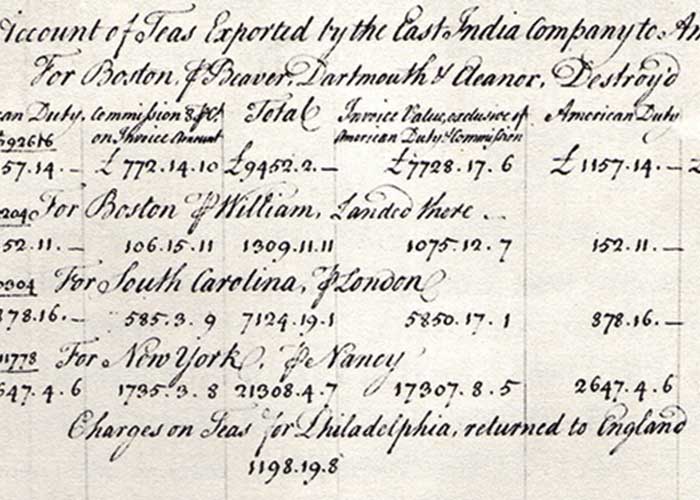 Account of Teas Exported by the East India Company to Am
For Boston, ⅌ Beaver, Dartmouth & Eleanor, Destroy'd
can Duty, Commission 8 ⅌Ct. Total Invoice Value, exclusive of American Duty
92616 on Invoice Amount American Duty & Commission
57.14.— £772.14.10 £9452.2.— £7728.17.6 £1157.14.—
204 For Boston ⅌ William, Landed there
52.11.— 106.15.11 1309.11.11 1075.12.7 152.11.—
0304 For South Carolina, ⅌ London
878.16.— 585.3.9 7124.19.1 5850.17.1 878.16.—
11778 For New York, ⅌ Nancy
647.4.6 1735.3.8 21308.4.7 17307.8.5 2647.4.6
Charges on Teas for Philadelphia, returned to England
1198.19.8